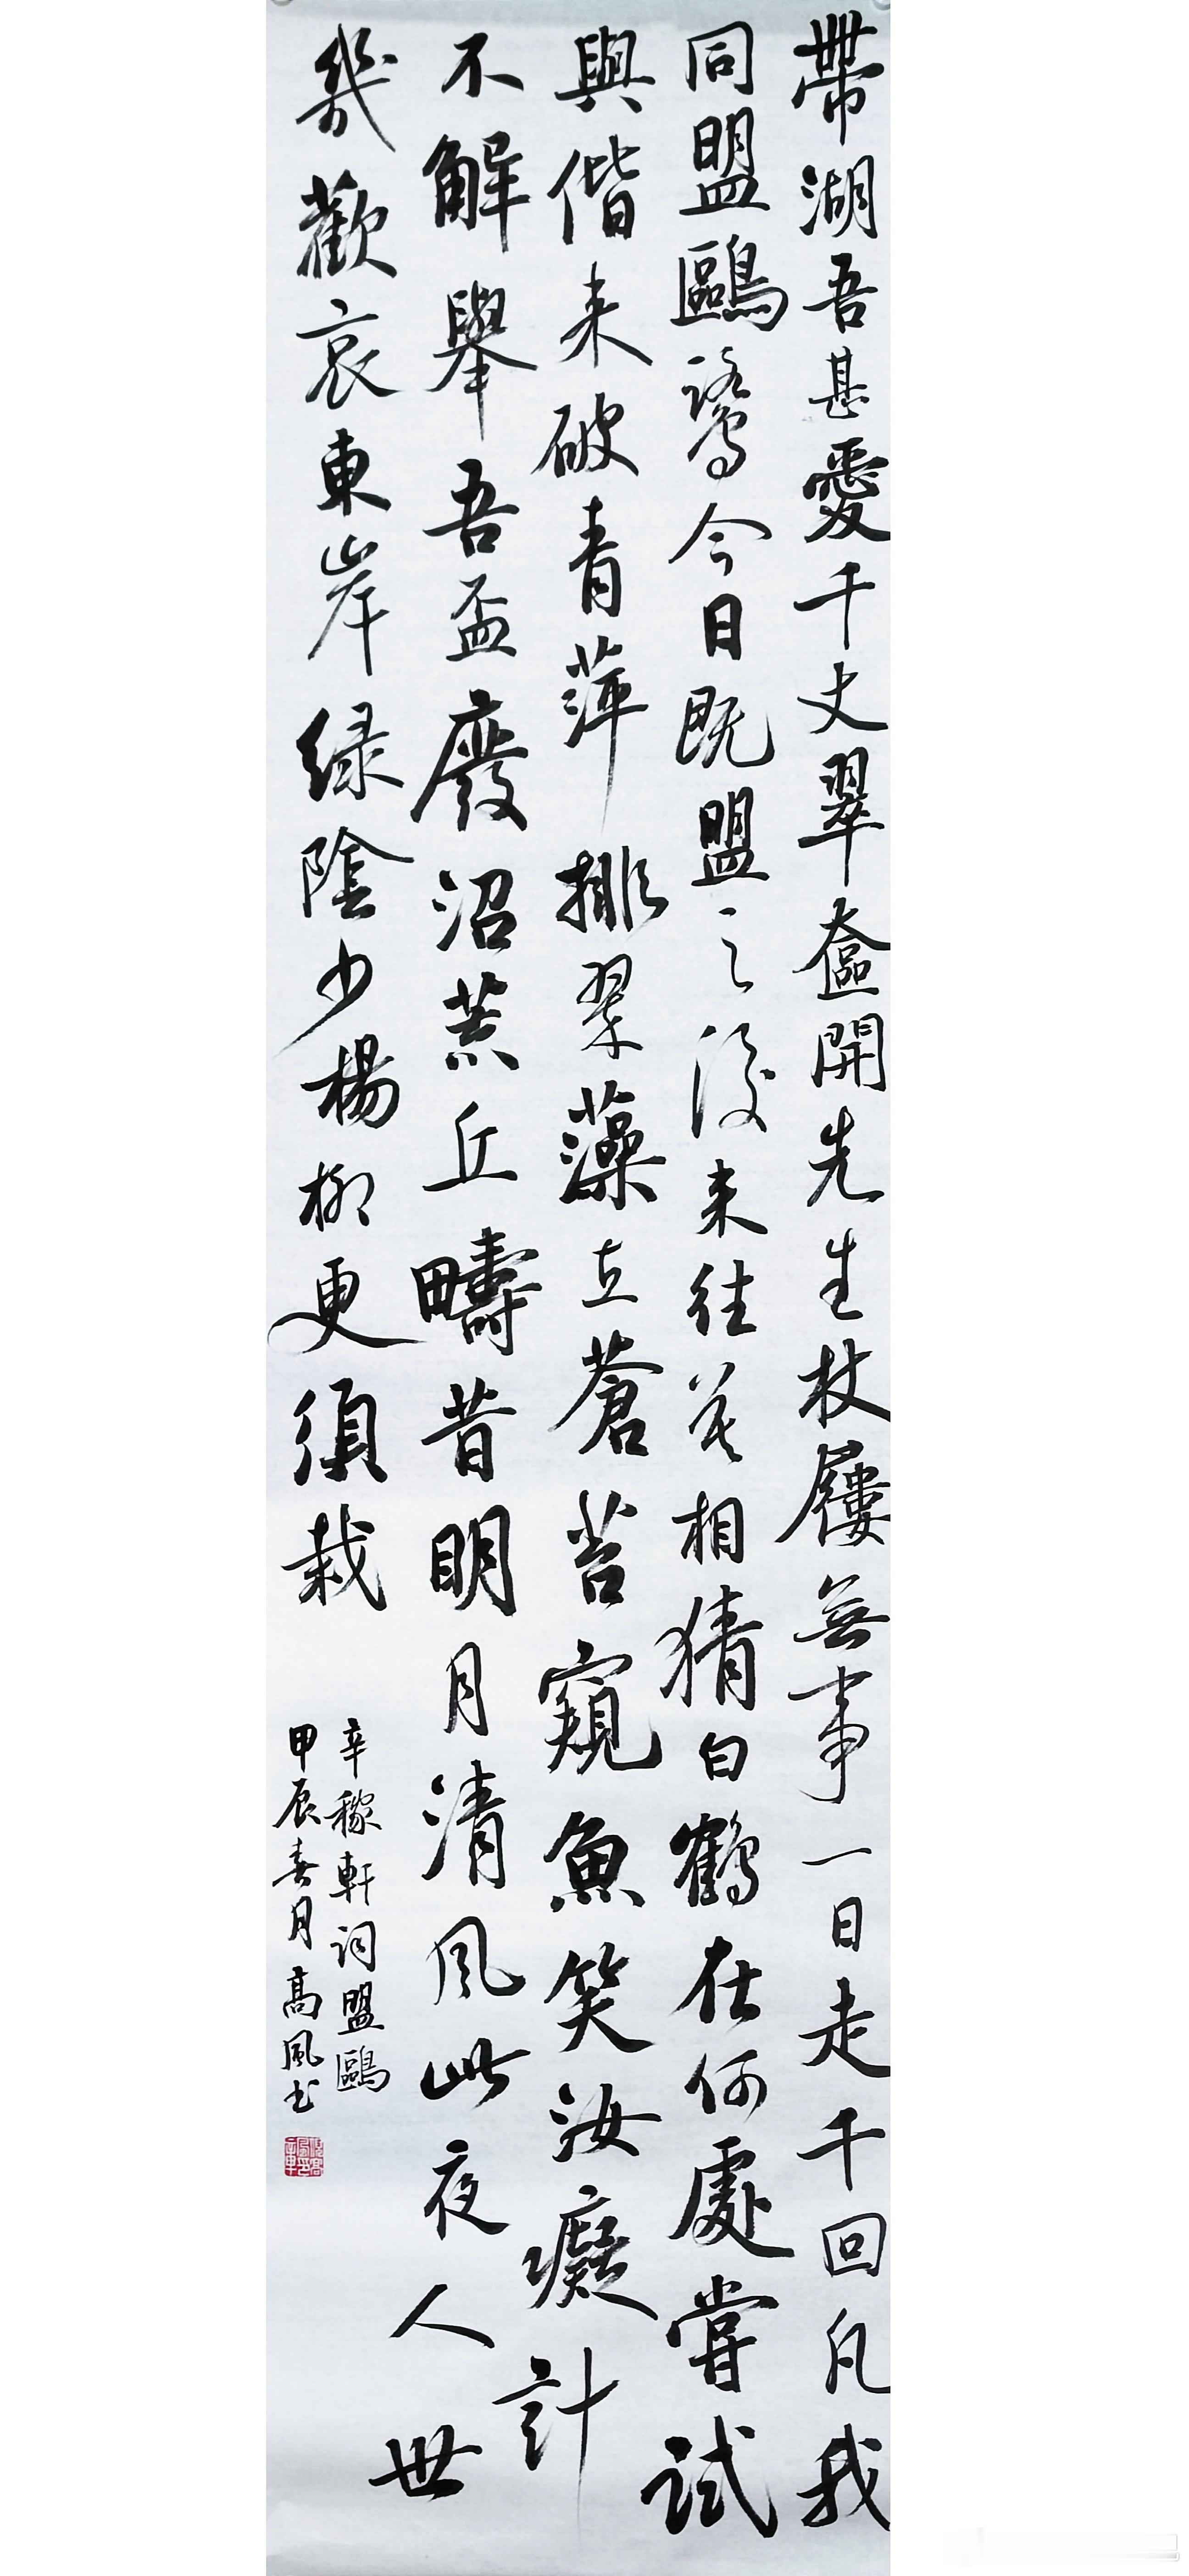 帶湖吾甚愛千丈翠奩開先生杖屨無事一日走千回凡我
同盟鷗鷺今日既盟之後来往莫相猜白鶴在何處嘗試
與偕来破青萍排翠藻立蒼苔窺魚笑汝癡計
不解舉吾盃廢沼荒丘疇昔明月清風此夜人世
幾歡哀東岸绿陰少楊柳更須栽
辛稼軒词盟鷗
甲辰春月高風书